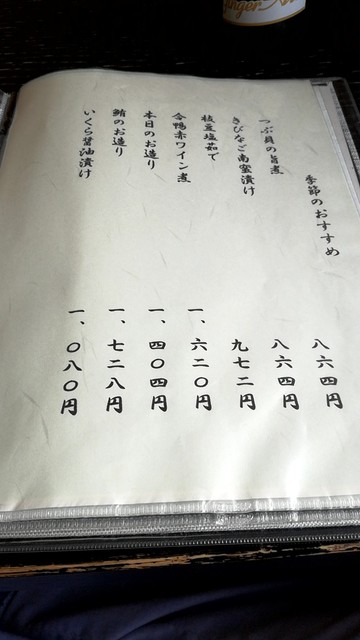 季節のおすすめ
つぶ貝の旨煮 八六四円
きびなご南蛮漬け 八六四円
枝豆塩茹で 九七二円
合鴨赤ワイン煮 一、六二〇円
本日のお造り 一、四〇四円
鮪のお造り 一、七二八円
いくら醤油漬け 一、〇八〇円